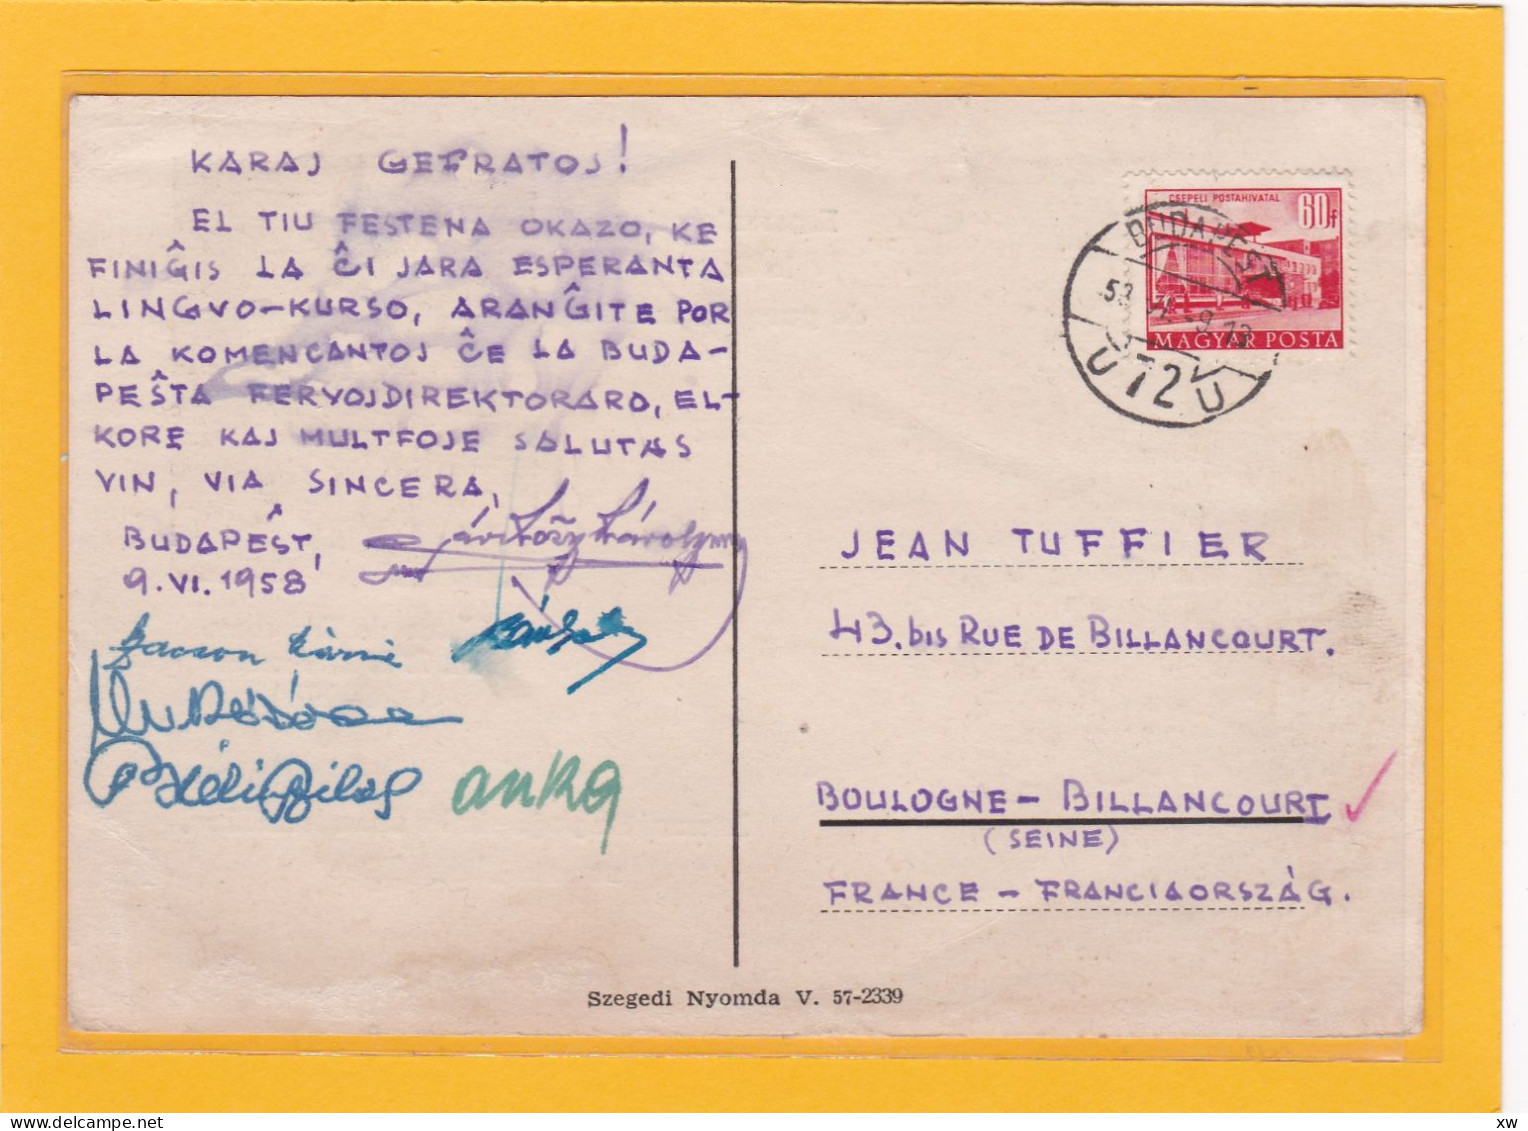 KARAJ GEFRATOJ!
EL TIU FESTENA OKAZO, KE
FINIĜIS LA ĈI JARA ESPERANTA
LINGVO-KURSO, ARANĜITE POR
LA KOMENCANTOJ ĈE LA BUDA-
PEŜTA FERVOJDIREKTORARO, EL-
KORE KAJ MULTFOJE SALUTAS
VIN, VIA SINCERA,
BUDAPEŜT,
9.VI.1958
anka
CSEPELI POSTAHIVATAL
60f
MAGYAR POSTA
BUDAPEST
72
JEAN TUFFIER
43.bis RUE DE BILLANCOURT.
BOULOGNE - BILLANCOURT
(SEINE)
FRANCE - FRANCIAORSZÁG.
Szegedi Nyomda V. 57-2339
xw
delcampe.net